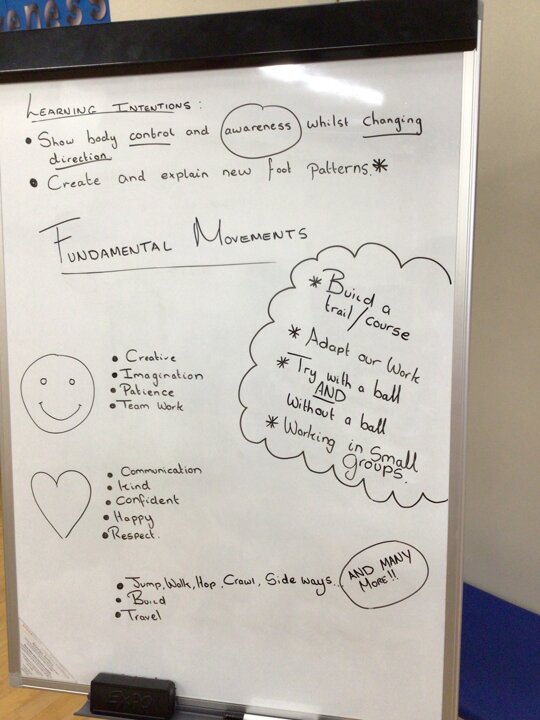 LEARNING INTENTIONS:
• Show body control and awareness whilst changing
direction.
• Create and explain new foot patterns.*
FUNDAMENTAL MOVEMENTS
* Build a
trail/course
* Adapt our Work
* Try with a ball
AND
without a ball
* Working in Small
Groups.
• Creative
• Imagination
• Patience
• Team Work
• Communication
• kind
• Confident
• Happy
• Respect.
• Jump, Walk, Hop, Crawl, Side ways...
• Build
• Travel
AND MANY
MORE!!
EXPO